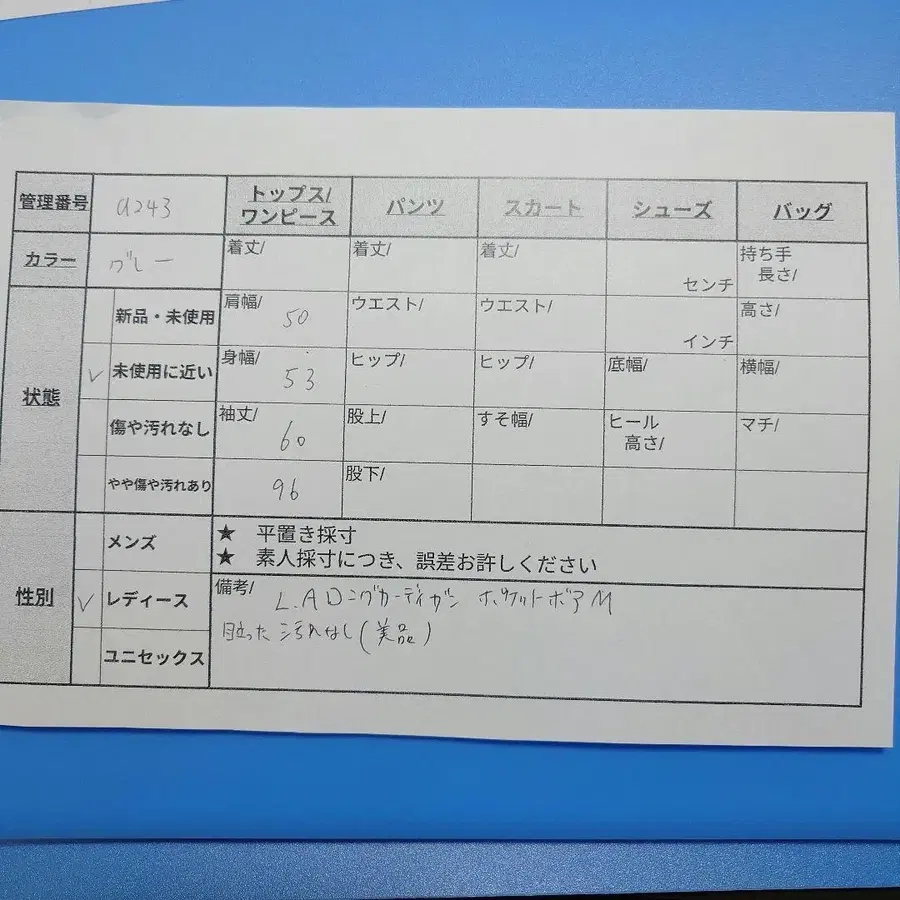 管理番号 a243 トップス/ワンピース パンツ スカート シューズ バッグ
カラー グレー 着丈/ 着丈/ 着丈/ センチ 持ち手長さ/
状態
新品・未使用 肩幅/ 50 ウエスト/ ウエスト/ インチ 高さ/
✓ 未使用に近い 身幅/ 53 ヒップ/ ヒップ/ 底幅/ 横幅/
傷や汚れなし 袖丈/ 60 股上/ すそ幅/ ヒール高さ/ マチ/
やや傷や汚れあり 96 股下/
性別
メンズ ★ 平置き採寸
★ 素人採寸につき、誤差お許しください
✓ レディース 備考/ L.A Dニグカーディガン ポケットボア M
目立った汚れなし(美品)
ユニセックス